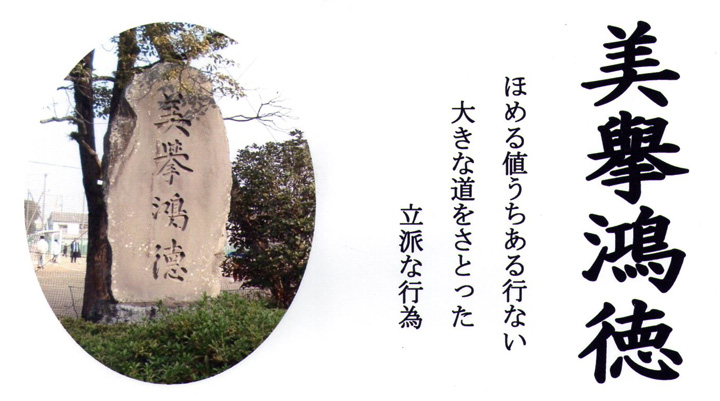 美擧鴻徳
ほめる値うちある行ない
大きな道をさとった
立派な行為
美擧鴻徳